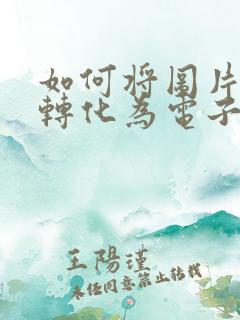 如何将圖片
轉化為電子
王陽瑾
未经同意禁止转载